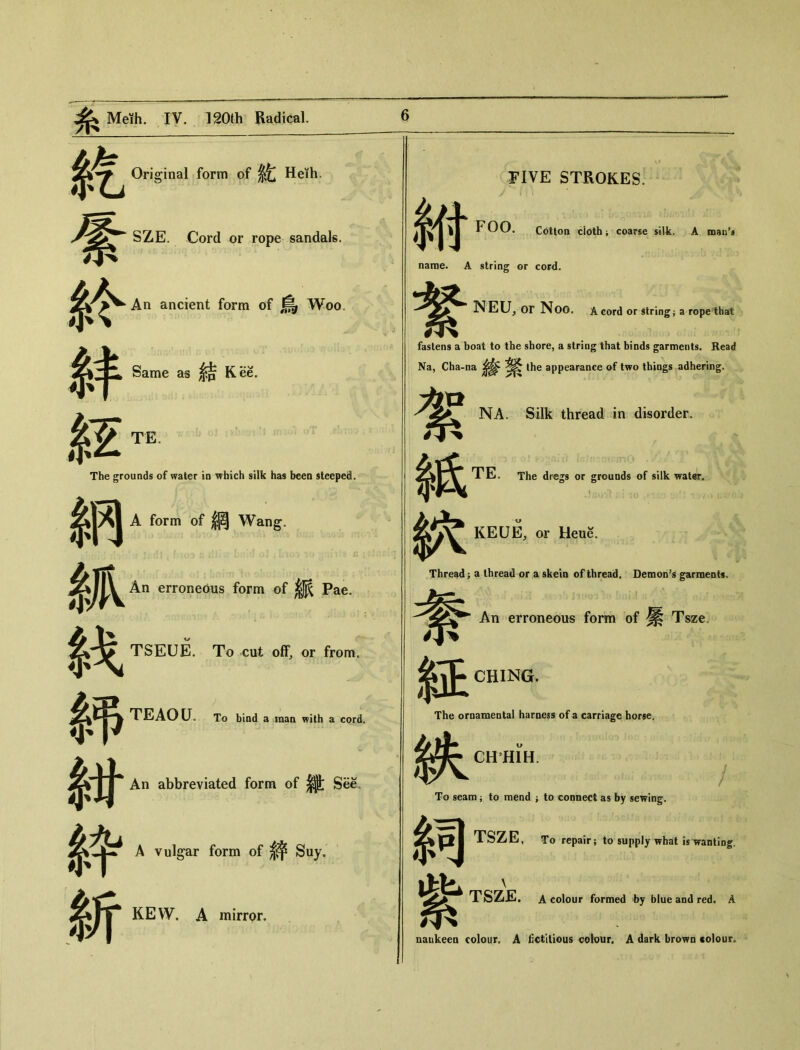 糸 Meĭh. IV. 120th Radical. 6
紇 Original form of 紇 Heĭh.
SZE. Cord or rope sandals.
An ancient form of 烏 Woo.
Same as 結 Këĕ.
TE.
The grounds of water in which silk has been steeped.
A form of 網 Wang.
An erroneous form of Pae.
TSEUĔ. To cut off, or from.
TEAOU. To bind a man with a cord.
An abbreviated form of 紲 Sëĕ.
A vulgar form of 綷 Suy.
KEW. A mirror.
FIVE STROKES.
紨 FOO. Cotton cloth; coarse silk. A man's
name. A string or cord.
NEU, or Noo. A cord or string; a rope that
fastens a boat to the shore, a string that binds garments. Read
Na, Cha-na the appearance of two things adhering.
絮 NA. Silk thread in disorder.
紙 TE. The dregs or grounds of silk water.
KEUĔ, or Heuĕ.
Thread; a thread or a skein of thread. Demon's garments.
An erroneous form of Tsze.
CHING.
The ornamental harness of a carriage horse.
紩 CH'HĬH.
To seam; to mend; to connect as by sewing.
TSZE, To repair; to supply what is wanting.
紫 TSZE. A colour formed by blue and red. A
nankeen colour. A fictitious colour. A dark brown colour.